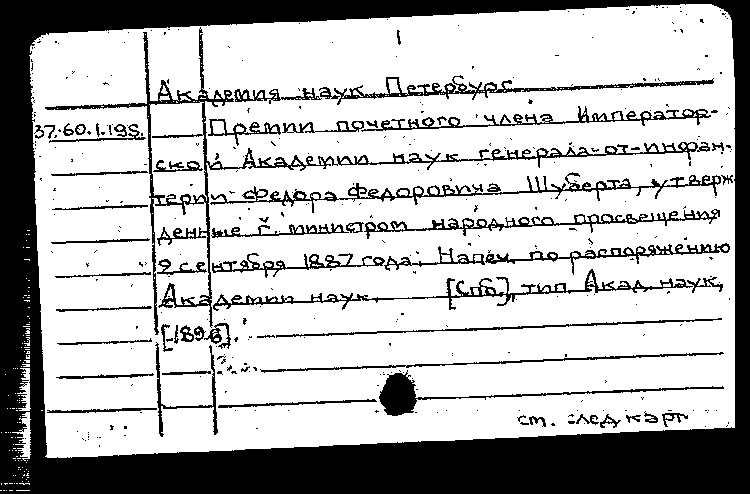 1
Академия наук Петербург
37.60.1.198. Премии почетного члена Император-
ской Академии наук генерала-от-инфан-
терии Федора Федоровича Шуберта, утверж-
денные г. министром народного просвещения
9 сентября 1887 года. Напеч. по распоряжению
Академии наук. [Спб.], тип. Акад. наук,
[1896].
см. след карт